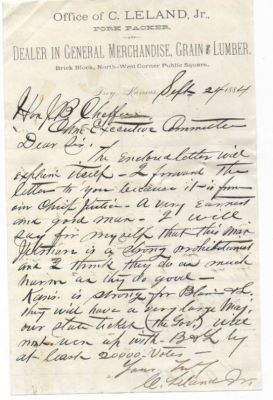 Office of C. LELAND, Jr.,
PORK PACKER,
—AND—
DEALER IN GENERAL MERCHANDISE, GRAIN & LUMBER.
Brick Block, North-West Corner Public Square,
Troy, Kansas, Sept 24 1884
Hon J B Chaffee
Chm Executive Committee
Dear Sir:
The Enclosed letter will
explain itself - I forward the
letter to you because it is from
our Chief Justice - A very Earnest
and good man - I will
say for myself that this man
is a strong prohibitionist
and I think they do as much
harm as they do good -
Kans. is strong for Blaine & L.
they will have a very large Maj.
our state ticket (the Gov.) will
not run up with B & L by
at least 20000 votes -
Yours Truly
C. Leland Jr.